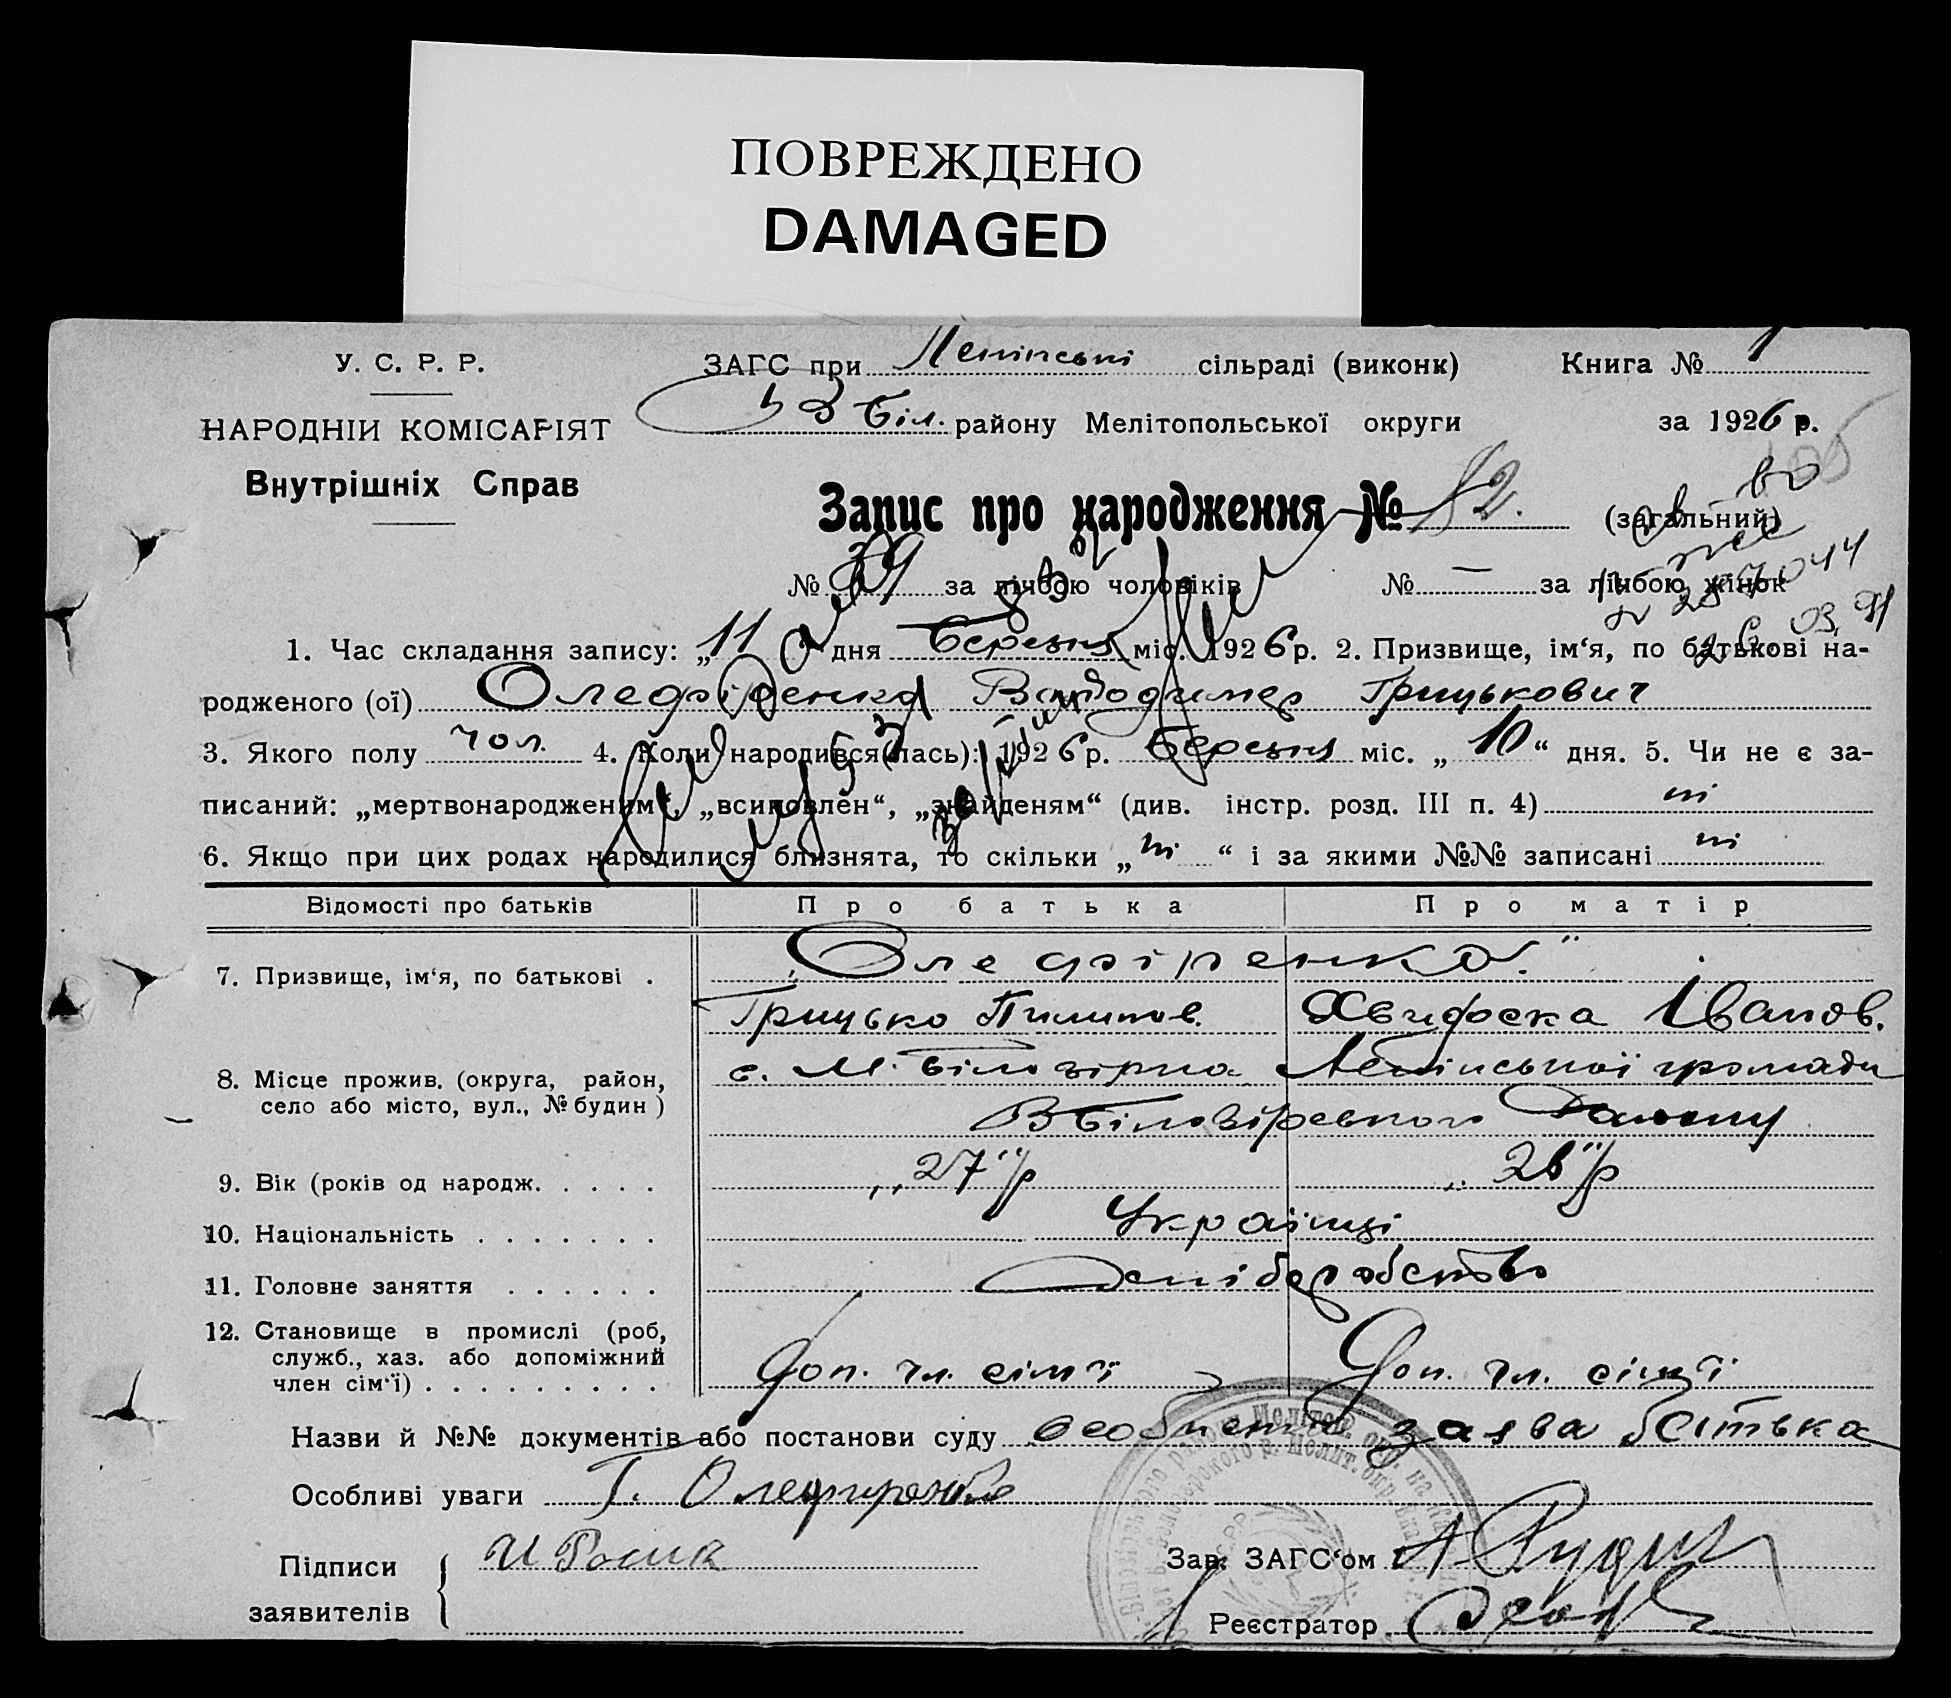 ПОВРЕЖДЕНО
DAMAGED
У. С. Р. Р. ЗАГС при Ленінські сільраді (виконк) Книга № 1
НАРОДНІЙ КОМІСАРІЯТ Біл. району Мелітопольської округи за 1926 р.
Внутрішніх Справ
Запис про народження № 82. (загальний)
№ 39 за лічбою чоловіків № — за лічбою жінок
1. Час складання запису: „11 дня Березня міс. 1926 р. 2. Призвище, ім‘я, по батькові на-
родженого (ої) Олефіренко Володимер Грицькович
3. Якого полу чол. 4. Коли народився(лась): 1926 р. Березня міс. „10“ дня. 5. Чи не є за-
писаний: „мертвонародженим“, „всиновлен“, „знайденям“ (див. інстр. розд. III п. 4) ні
6. Якщо при цих родах народилися близнята, то скільки „ні“ і за якими №№ записані ні
Відомості про батьків Про батька Про матір
7. Призвище, ім‘я, по батькові . Олефіренко
Грицько Пилипов. Іванов.
8. Місце прожив. (округа, район, с. М. Білозірка Ленінської громади
село або місто, вул., № будин ) В Білозірського району
9. Вік (років од народж. . . . . „27“ р „26“ р
10. Національність . . . . . . . Українці
11. Головне заняття . . . . . .
12. Становище в промислі (роб,
служб., хаз. або допоміжний
член сім‘ї) . . . . . . . . . Доп. чл. сімї Доп. чл. сімї
Назви й №№ документів або постанови суду особиста заява батька
Особливі уваги Г. Олефиренко
Підписи
заявителів
Зав. ЗАГС‘ом
Реєстратор